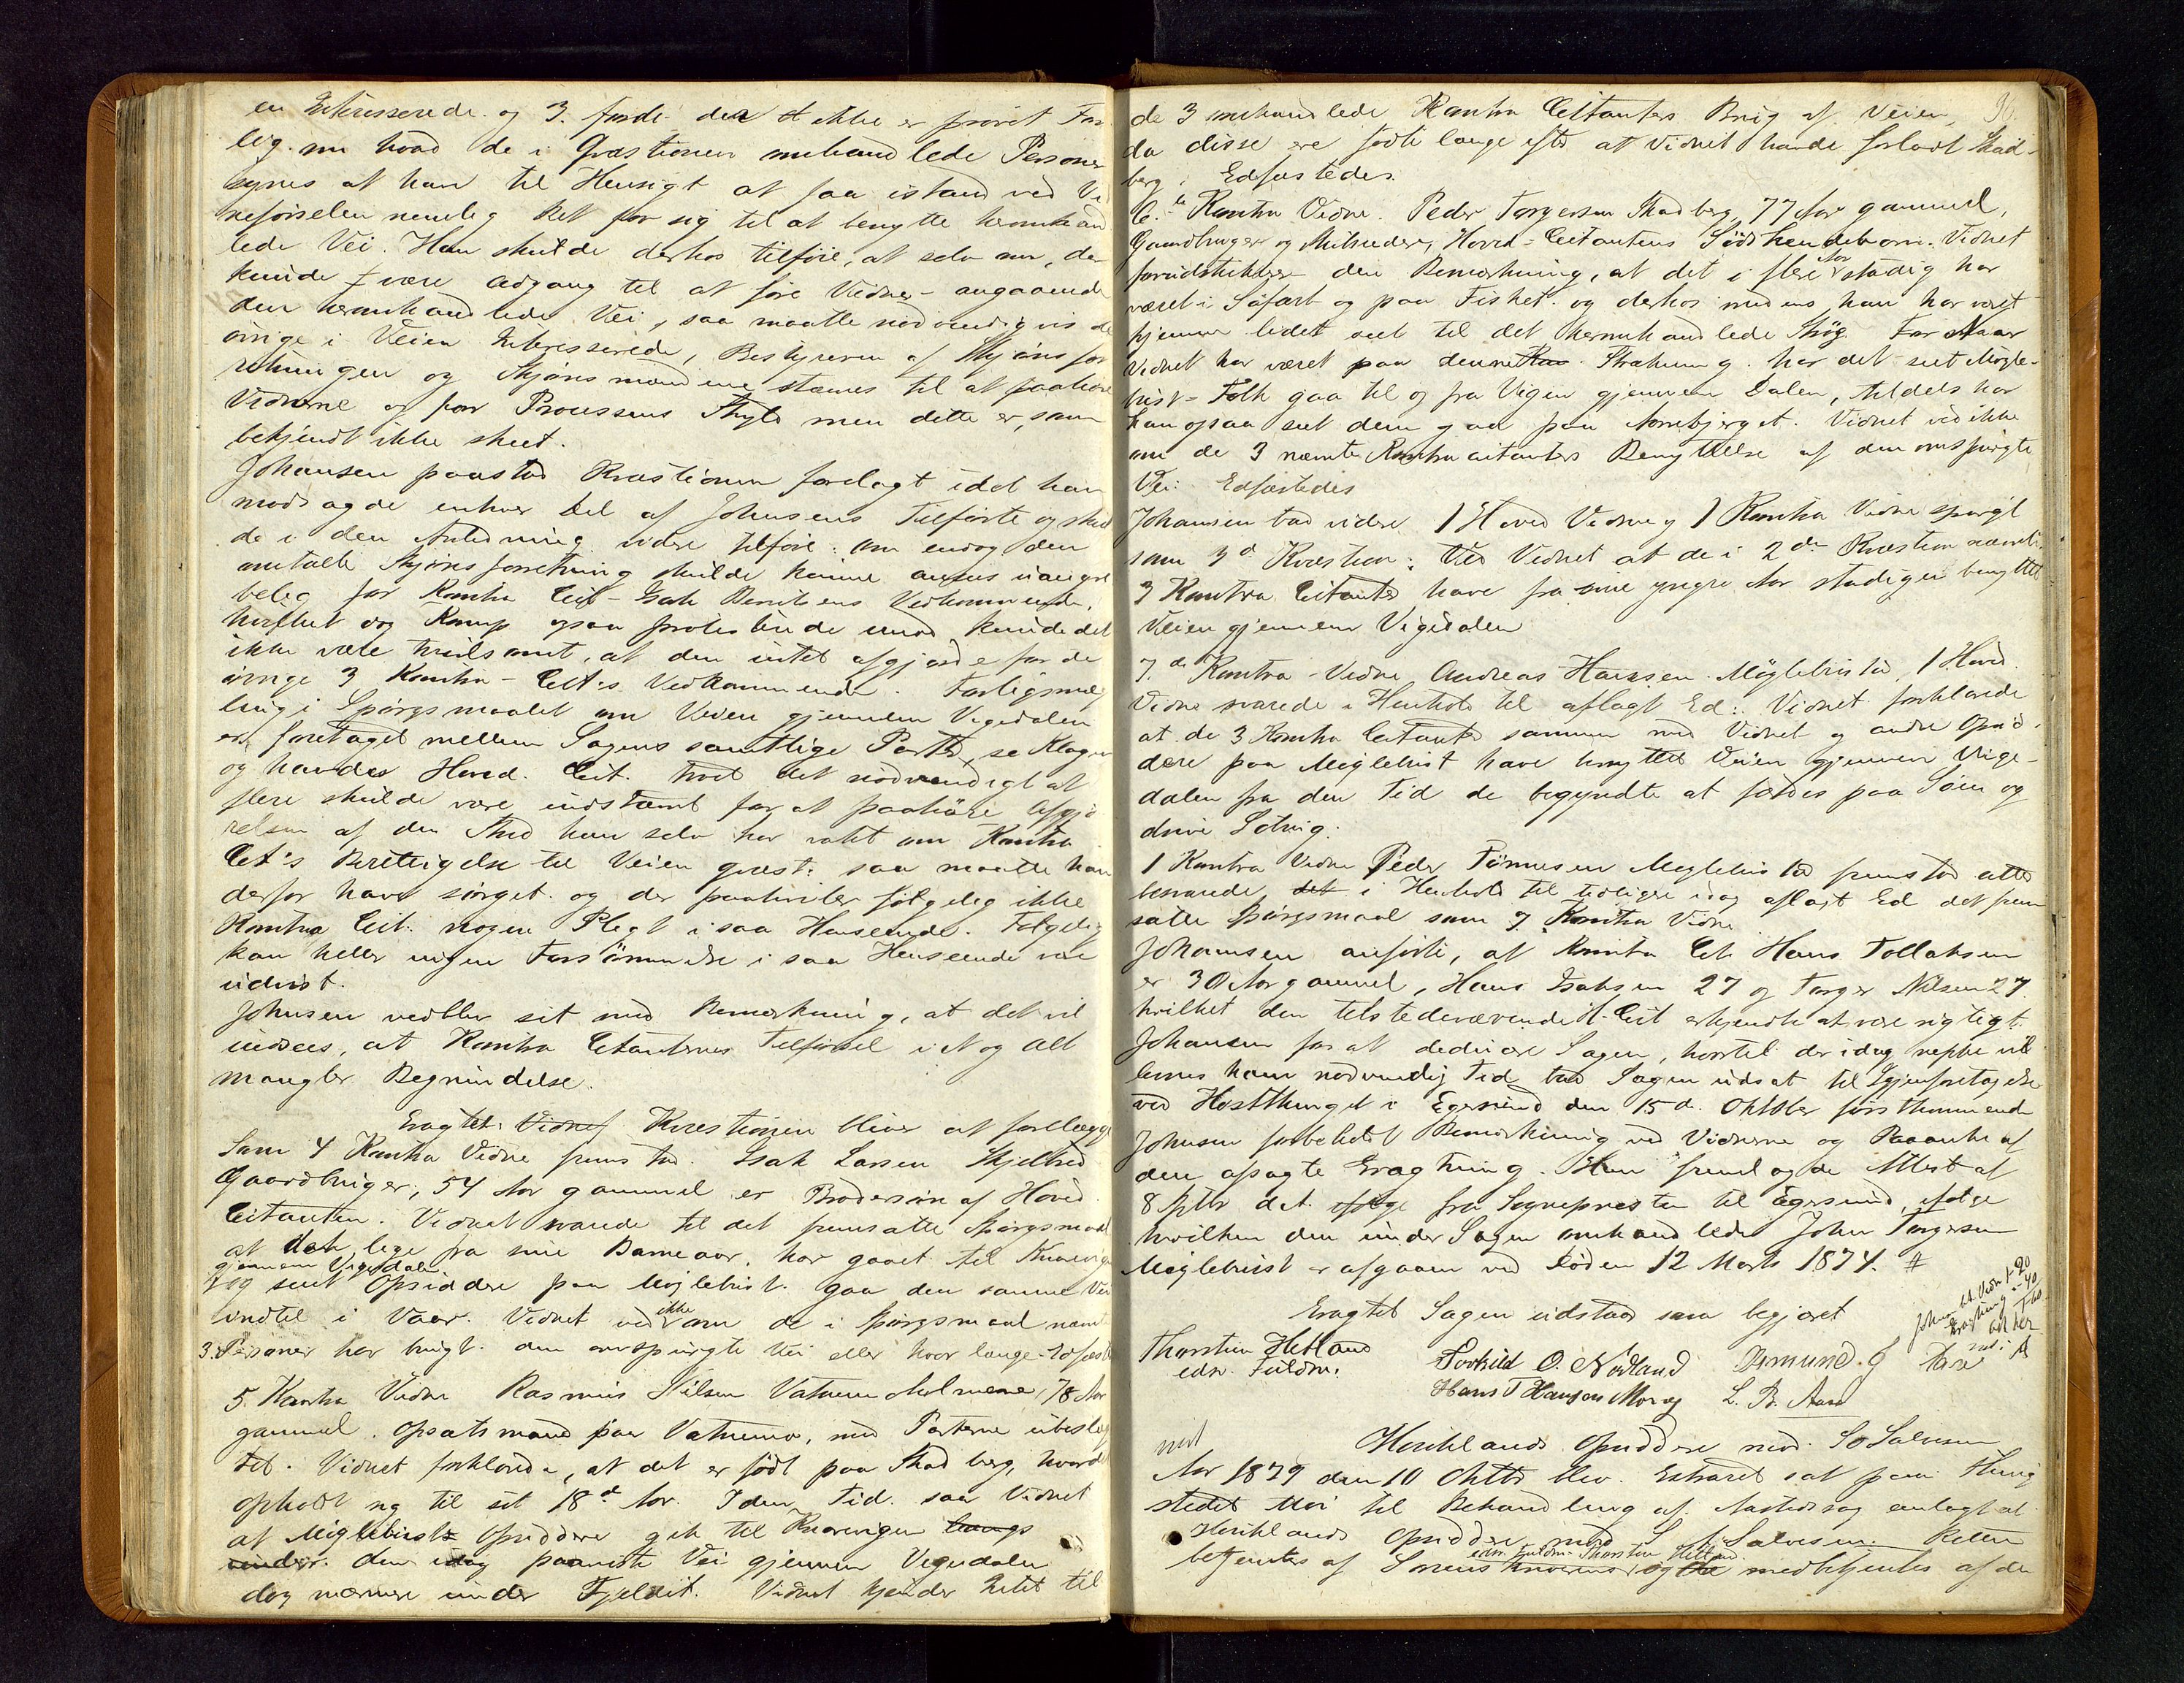 en Interesserede og 3. fordi der et ikke er prøvet For
lig om hvad de i Qvæstionen omhandlede Personer
synes at have til Hensigt at faa istand ved Vid
neførselen nemlig Ret for sig til at benytte heromhand
lede Vei. Han skulde derhos tilføie, at selv om, der
kunde være Adgang til at føre Vidner angaaende
den heromhandlede Vei, saa maatte nødvendigvis de
øvrige i Veien Interesserede, Bestyreren af Skjønsfor
retningen og Skjønsmændene stævnes til at paahøre
Vidnerne og for Processens Skyld men dette er, som
bekjendt ikke skeet.
Johansen paastod Kvæstionen forelagt idet han
modsagde enhver Del af Johnsens Tilførte og skul
de i den Anledning videre tilføie: om endog den
omtalte Skjønsforretning skulde kunne ansees
for Kontra Cit. Isak Berntsens Vedkommende,
hvilket dog Komp ogsaa protesterede imod, kunde det
ikke være tvivlsomt, at den intet afgjorde for de
øvrige 3 Kontra-Cit:s Vedkommende. Forligsmæg
ling i Spørgsmaalet om Veien gjennem Vigedalen
er foretaget mellem Sagens samtlige Parter, se Klagen
og havdes Hoved. Cit. troet det nødvendigt at
flere skulde være indstævnt for at paahøre Afgjø
relsen af den Strid han selv har vakt om Kontra
Cit's Berettigelse til Veien qvæst: saa maatte han
derfor have sørget og der paahviler følgelig ikke
Kontra Cit: nogen Pligt i saa Henseende. Følgelig
kan heller ingen Forsømmelse i saa Henseende være
udvist.
Johnsen vedblev sit med Bemærkning, at det vil
indsees, at Kontra Citanternes Tilførsel i Et og Alt
mangler Begrundelse.
Eragtet: Vidnef Kvæstionen bliver at forelægge
Som 4 Kontra Vidne fremstod Isak Larsen Skjelbred
Gaardbruger, 54 Aar gammel er Brodersøn af Hoved
Citanten. Vidnet svarede til det fremsatte Spørgsmaal
at det, lige fra sine Barneaar, har gaaet til
gjennem Vigedalen
og seet Opsiddere paa Møglebust gaa den samme Vei
indtil i Vaar. Vidnet ved ikke om de i Spørgsmaal nævnte
3 Personer har brugt den omspurgte Vei eller hvor længe. Edfæst
5. Kontra Vidne Rasmus Nilsen Vatnemo 78 Aar
gammel. Opsatsmand paa Vatnemo, med Parterne ubeslæg
tet. Vidnet forklarede, at det er født paa Skadberg, hvor det
opholdt sig til sit 18d Aar. I den Tid saa Vidnet
at Møglebusts Opsiddere gik til Knarevigen langs
under den idag paaviste Vei gjennem Vigedalen
dog nærmere under Fjeldet. Vidnet kjender Intet til
36.
de 3 omhandlede Kontra Citanters Brug af Veien,
da disse ere fødte længe efter at Vidnet havde forladt Skad-
berg. Edfæstedes.
6.te Kontra Vidne. Peder Torgersen Skadberg, 77 Aar gammel,
Gaardbruger og Hoved-Citantens Sødskendebarn. Vidnet
forudskikkede den Bemærkning, at det i flere Aar stadig har
været i Søfart og paa Fisket og derhos medens han har været
hjemme lidet seet til det heromhandlede Strøg. For Naar
Vidnet har været paa denne Kan Strækning har det seet Mogle-
bust-Folk gaa til og fra Vigen gjennem Dalen, tildels har
han ogsaa seet dem gaa paa Vidnet ved ikke
om de 3 nævnte Kontracitanters Benyttelse af den omspurgte
Vei. Edfæstedes
Johansen bad videre 1 Hoved Vidne og 1 Kontra Vidne spurgt
som 3d Kvæstion: Ved Vidnet at de i 2den Kvæstion nævnte
3 Kontra Citanter have fra sine yngre Aar stadigen benyttet
Veien gjennem Vigedalen
7.de Kontra-Vidne Andreas Hansen Møglebustad, 1 Hoved.
Vidne svarede i Henhold til aflagt Ed: Vidnet forklarede
at de 3 Kontra Citanter sammen med Vidnet og andre Opsid-
dere paa Møglebust have benyttet Veien gjennem Vige-
dalen fra den Tid de begyndte at færdes paa Søen og
drive Søbrug.
1 Kontra Vidne Peder Tønnesen Møglebustad fremstod atter
besvarede det i Henhold til tidligere idag aflagt Ed det frem
satte Spørgsmaal som 7 Kontra Vidne
Johansen anførte, at Kontra Cit. Hans Tollaksen
er 30 Aar gammel, Hans Isaksen 27 og Torger Nilsen 27
hvilket den tilstedeværende H.Cit erkjendte at være rigtigt.
Johansen for at deducere Sagen, hvortil der idag neppe vil
levnes ham nødvendig Tid bad Sagen udsat til Igjenforetagelse
ved Høstthinget i Egersund den 15de Oktober førstkommende
Johnsen forbeholdt Bemærkning ved Vidnerne og Paaanke af
den afsagte Eragtning. Han fremlagde Attest af
8 Septbr d.A. ifølge fra Sognepresten til Egersund, ifølge
hvilken den under Sagen omhandlede John Torgersen
Møglebust er afgaaen ved Døden 12 Marts 1874. #
Eragtet Sagen udstaar som begjæret
Thorstein Hetland
edsv. Fuldm.
Torkild O. Nodland
Hans T Hansen Morug L. B. Aase
Aar 1879 den 10 Oktbr blev Extraret sat paa Thing
stedet Moi til Behandling af Aastedssag anlagt af
Heuhlands Opsiddere mod Salvesen. Retten
edsv. Fuldm. Thorstein Hetland
betjentes af Sorenskriverens og medbetjentes af de